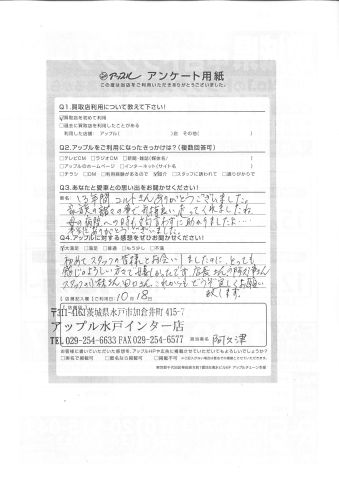 アップル アンケート用紙
この度は当店をご利用いただきありがとうございました。
Q1.買取店利用について教えて下さい!
☑買取店を初めて利用
□過去に買取店を利用したことがある
利用した店舗: アップル( )店 その他( )
Q2.アップルをご利用になったきっかけは?(複数回答可)
□テレビCM □ラジオCM □新聞・雑誌(媒体名/ )
□アップルのホームページ □インターネット(サイト名 )
□チラシ □DM □利用経験があるので ☑紹介 □スタッフに誘われて □通りがかりで
Q3.あなたと愛車との思い出をお聞かせください!
車名: 13年間 コルトさんありがとうございました。
家族の諸々の事で お利口に走ってくれましたね
母の病院への日
本当にありがとうございました。
Q4.アップルに対する感想をぜひお聞かせください!
☑大満足 □満足 □普通 □もう少し □不満
初めてスタッフの皆様とお会いしましたのに、とっても
感じよろしい方で嬉しかったです 店長さんの阿久津さん
スタッフの小枝さん 田口さん これからもどうぞ宜しくお願い
致します。
【店舗記入欄】ご利用日: 10月18日
〒311-4161茨城県水戸市加倉井町 415-7
アップル水戸インター店
TEL 029-254-6633 FAX 029-254-6577
担当者名 阿久津
お客様に書いていただいた感想を、アップルHPや広告に掲載させていただいてもよろしいでしょうか?
□実名で掲載可 □匿名なら掲載可 □掲載不可